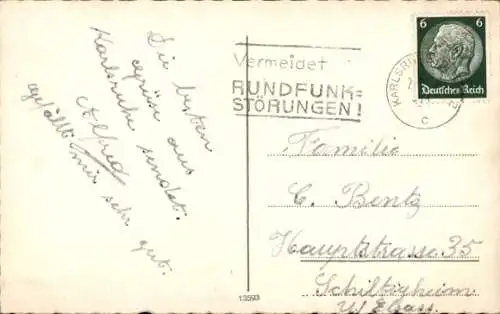 Die besten
Grüsse aus
Karlsruhe sendet.
Alfred
gefällt mir sehr
gut.
Vermeidet
RUNDFUNK=
STÖRUNGEN!
KARLSRUHE
c
6 6
Deutsches Reich
Familie
C. Bentz
Hauptstrasse 35
Schiltigheim
U/Elsass.
13593